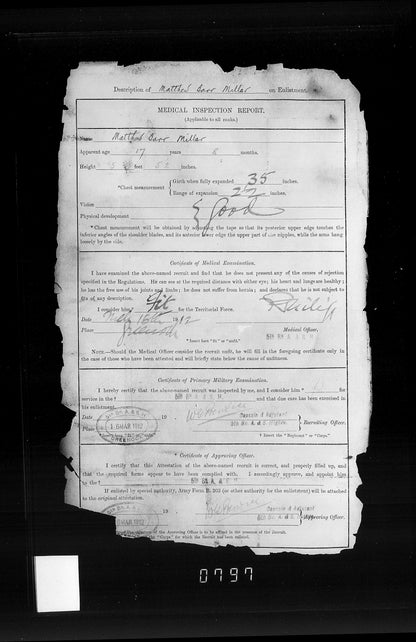 Description of Matthew Barr Millar on Enlistment.
MEDICAL INSPECTION REPORT.
(Applicable to all ranks.)
Name Matthew Barr Millar
Apparent age 17 years 6 months.
Height 5 feet 5½ inches.
*Chest measurement { Girth when fully expanded 35 inches.
Range of expansion 2½ inches.
Vision
Physical development } Good
* Chest measurement will be obtained by adjusting the tape so that its posterior upper edge touches the
inferior angles of the shoulder blades, and its anterior lower edge the upper part of the nipples, while the arms hang
loosely by the side.
Certificate of Medical Examination.
I have examined the above-named recruit and find that he does not present any of the causes of rejection
specified in the Regulations. He can see at the required distance with either eye; his heart and lungs are healthy; he
has the free use of his joints and limbs; he does not suffer from hernia; and declares that he is not subject to
fits of any description.
I consider him * Fit for the Territorial Force.
Date 16th 1912
Place Greenock Medical Officer.
5th Bn A. & S. H.
*Insert here "fit" or "unfit."
NOTE.—Should the Medical Officer consider the recruit unfit, he will fill in the foregoing certificate only in the
case of those who have been attested and will briefly state below the cause of unfitness.
Certificate of Primary Military Examination.
I hereby certify that the above-named recruit was inspected by me, and I consider him * for
service in the † 5th Bn A. & S. H. and that due care has been exercised in
his enlistment.
Date 16 MAR 1912 19
Place Captain & Adjutant
5th Bn. A. & S. H'ghrs. Recruiting Officer.
*Insert here "fit" or "unfit." † Insert the "Regiment" or "Corps."
* Certificate of Approving Officer.
I certify that this Attestation of the above-named recruit is correct, and properly filled up, and
that the required forms appear to have been complied with. I accordingly approve, and appoint him
to the † 5th Bn A. & S. H.
If enlisted by special authority, Army Form B. 203 (or other authority for the enlistment) will be attached to
the original attestation.
Date 16 MAR 1912 19
Place Captain & Adjutant
5th Bn. A. & S. H. Approving Officer.
of the Approving Officer is to be affixed in the presence of the Recruit.
"Corps" for which the Recruit has been enlisted.
0797